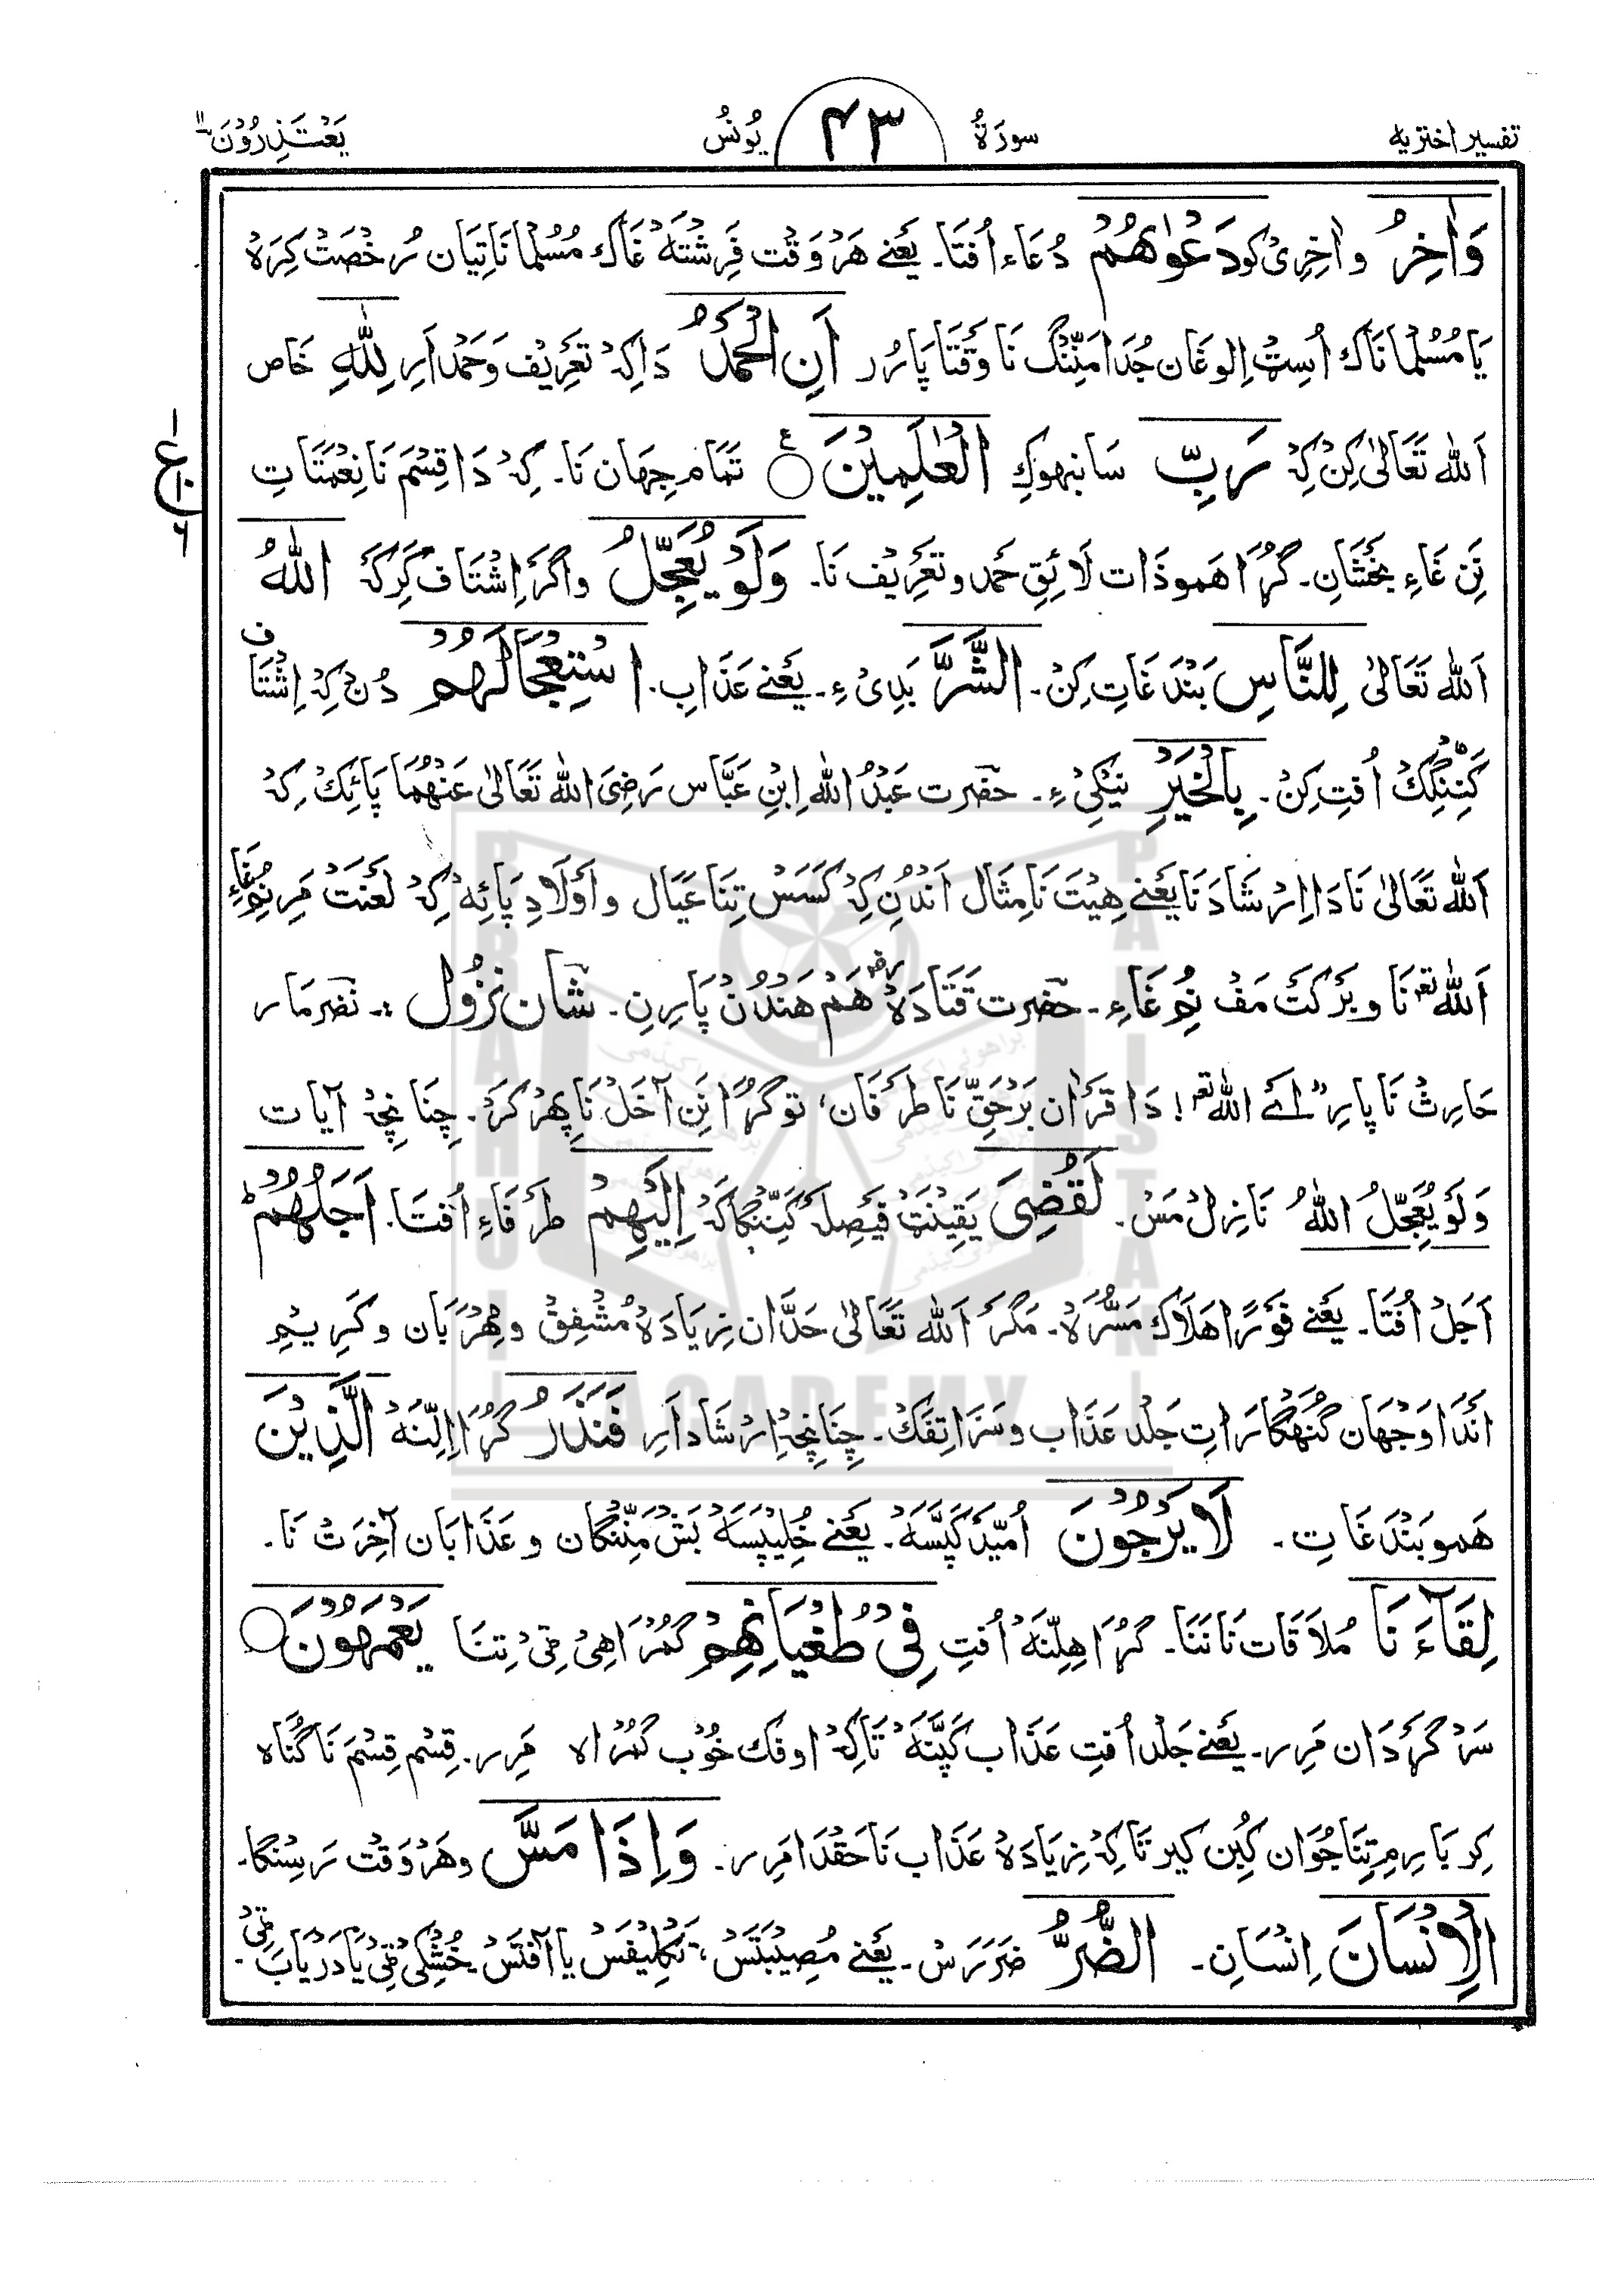 تفسیر اختریه سورة ۴۳ یُونسُ یَعْتَذِرُوْنَ ۱۱
وَاٰخِرُ وَاٰخِرِی کو دَعْوٰىهُمْ دُعَاء اُفتَا۔ یَعْنے هَرْوَقْت فَرِشْتَهْ غَاک مُسْلمانَاتِیَان رُخْصَتْ کِرَہْ
یَا مُسْلمانَاک اَسِٹ اِلوغَان جُدَا مَنِّنْگ نَا وَقْتَا پَارُر اَنِ الْحَمْدُ دَاکِہْ تَعْرِیْف وَحَمْد اَرِ لِلّٰهِ خَاص
اَللّٰه تَعَالٰی کِنْ کِہْ رَبِّ سَانبهوکِ الْعٰلَمِیْنَ تَمَّام جِهَان نَا۔ کِہْ دَا قِسْمَ نَا نِعْمَتَاتِ
نَنْ غَاءِ بَخْشَان۔ گُڑَا هَمو ذَات لَائِقِ حَمْد و تَعْرِیْف نَا۔ وَلَوْ یُعَجِّلُ وَاگرْ اِشْتَاف کَرِکَہْ اللّٰهُ
اَللّٰه تَعَالٰی لِلنَّاسِ بَنْدَغَاتِ کِنْ۔ الشَّرَّ بَدِیْ ءِ۔ یَعْنے عَذَاب۔ اسْتِعْجَالَهُمْ دُنْ کِہْ اِشْتَاف
کَنِّنْگِکْ اُفتِ کِنْ۔ بِالْخَیْرِ نیْکِیْ ءِ۔ حضرت عَبْدُ اللّٰه اِبْنِ عَبَّاس رَضِیَ اللّٰه تَعَالٰی عَنْهُمَا پَائِکْ کِہْ
اَللّٰه تَعَالٰی نَا دَا اِرْشَادْ نَا یَعْنے هِیْتَ نَا مِثَال اَنْدُنِ کِہْ کَسَسْ تِنَا عَیَال وَاَوْلَادِ پَائِهْ کِہْ لَعْنَتْ مَرِ نُمْ غَاءِ
اَللّٰه تع نَا و بَرْکَتْ مَفْ نُمْ غَاءِ۔ حضرت قَتَادَہْ رض هَمْ هَنْدُنْ پَارِنِ۔ شَانِ نُزُوْل :۔ نَضَر مَار
حَارِثْ نَا پَارِ "اَے اللّٰه تع! دَا قُرْاٰن بَرْحَقِّ نَا طَرْفَان، تو گُڑَا نَن آ خَل نَا پِهْر کَرْ۔ چِنَانچِہْ آیات
وَلَوْ یُعَجِّلُ اللّٰهُ نَازِلْ مَسْ۔ لَقُضِیَ یَقِیْنَتْ فَیْصِلَہْ کَنِّنْگَاکَہْ اِلَیْهِمْ طَرْفَاءِ اُفتَا۔ اَجَلُهُمْ ط
اَجَلْ اُفتَا۔ یَعْنے فَوْرًا هَلَاک مَسُّرَہْ۔ مَگَرْ اَللّٰه تَعَالٰی حَدَّان زِیَادَہ مُشْفِقْ و مِهْرْبَان و کَرِیْمِ
اَنْدَا وَجْهَان گُنْهگَارَاتِ جَلْد عَذَاب وَسَزَا تِفَکْ۔ چِنَانچِہْ اِرْشَاد اَرِ فَنَذَرُ گُڑَا اِلِّنَهْ الَّذِیْنَ
هَمو بَنْدَغَاتِ۔ لَا یَرْجُوْنَ اُمِّیْدْ کَپَّسَہْ۔ یَعْنے خُلِیْپَسَہْ بَشْ مَنِّنْگان و عَذَابَان آخِرَتْ نَا۔
لِقَآءَ نَا مُلَاقَات نَا نَنَا۔ گُڑَا هِلِّنَهْ اُفتِ فِیْ طُغْیَانِهِمْ گُمْرَاهِیْ ٹِیْ تِنَا یَعْمَهُوْنَ
سَرْگَرْدَان مَرِر۔ یَعْنے جَلْد اُفتِ عَذَاب کَپَّنَهْ تَاکِہْ اوفک خُوْب گُمْرَاہ مَرِر۔ قِسْم قِسْمَ نَا گُنَاہ
کِر یَارِمِ تِنَا جُوَان کُبِن کیر تَاکِہْ زِیَادَہْ عَذَاب نَا حَقْدَا مَرِر۔ وَاِذَا مَسَّ وهَرْوَقْتْ رَسِنْگَا۔
الْاِنْسَانَ اِنْسَانِ۔ الضُّرُّ ضَرَرَسْ۔ یَعْنے مُصِیْبَتَسْ، تَکْلِیْفَسْ یا آفَتَسْ۔ خُشْکِیْ ٹِیْ یَا دَرْیَابَ ٹِیْ۔